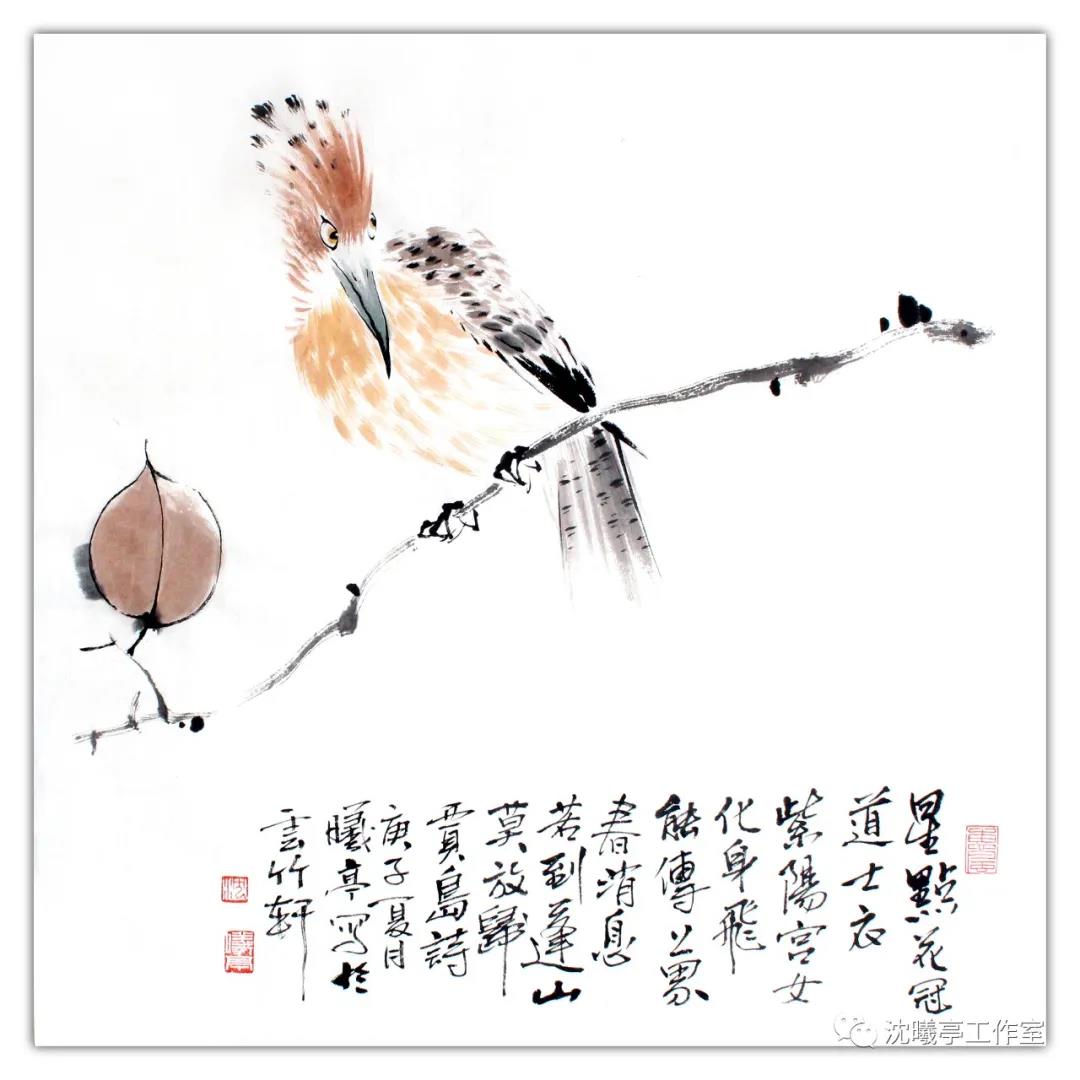 星點花冠
道士衣
紫陽宫女
化身飛
能傳上界
春消息
若到蓬山
莫放歸
賈島詩
庚子夏月
曦亭寫於
雲竹軒
沈曦亭工作室